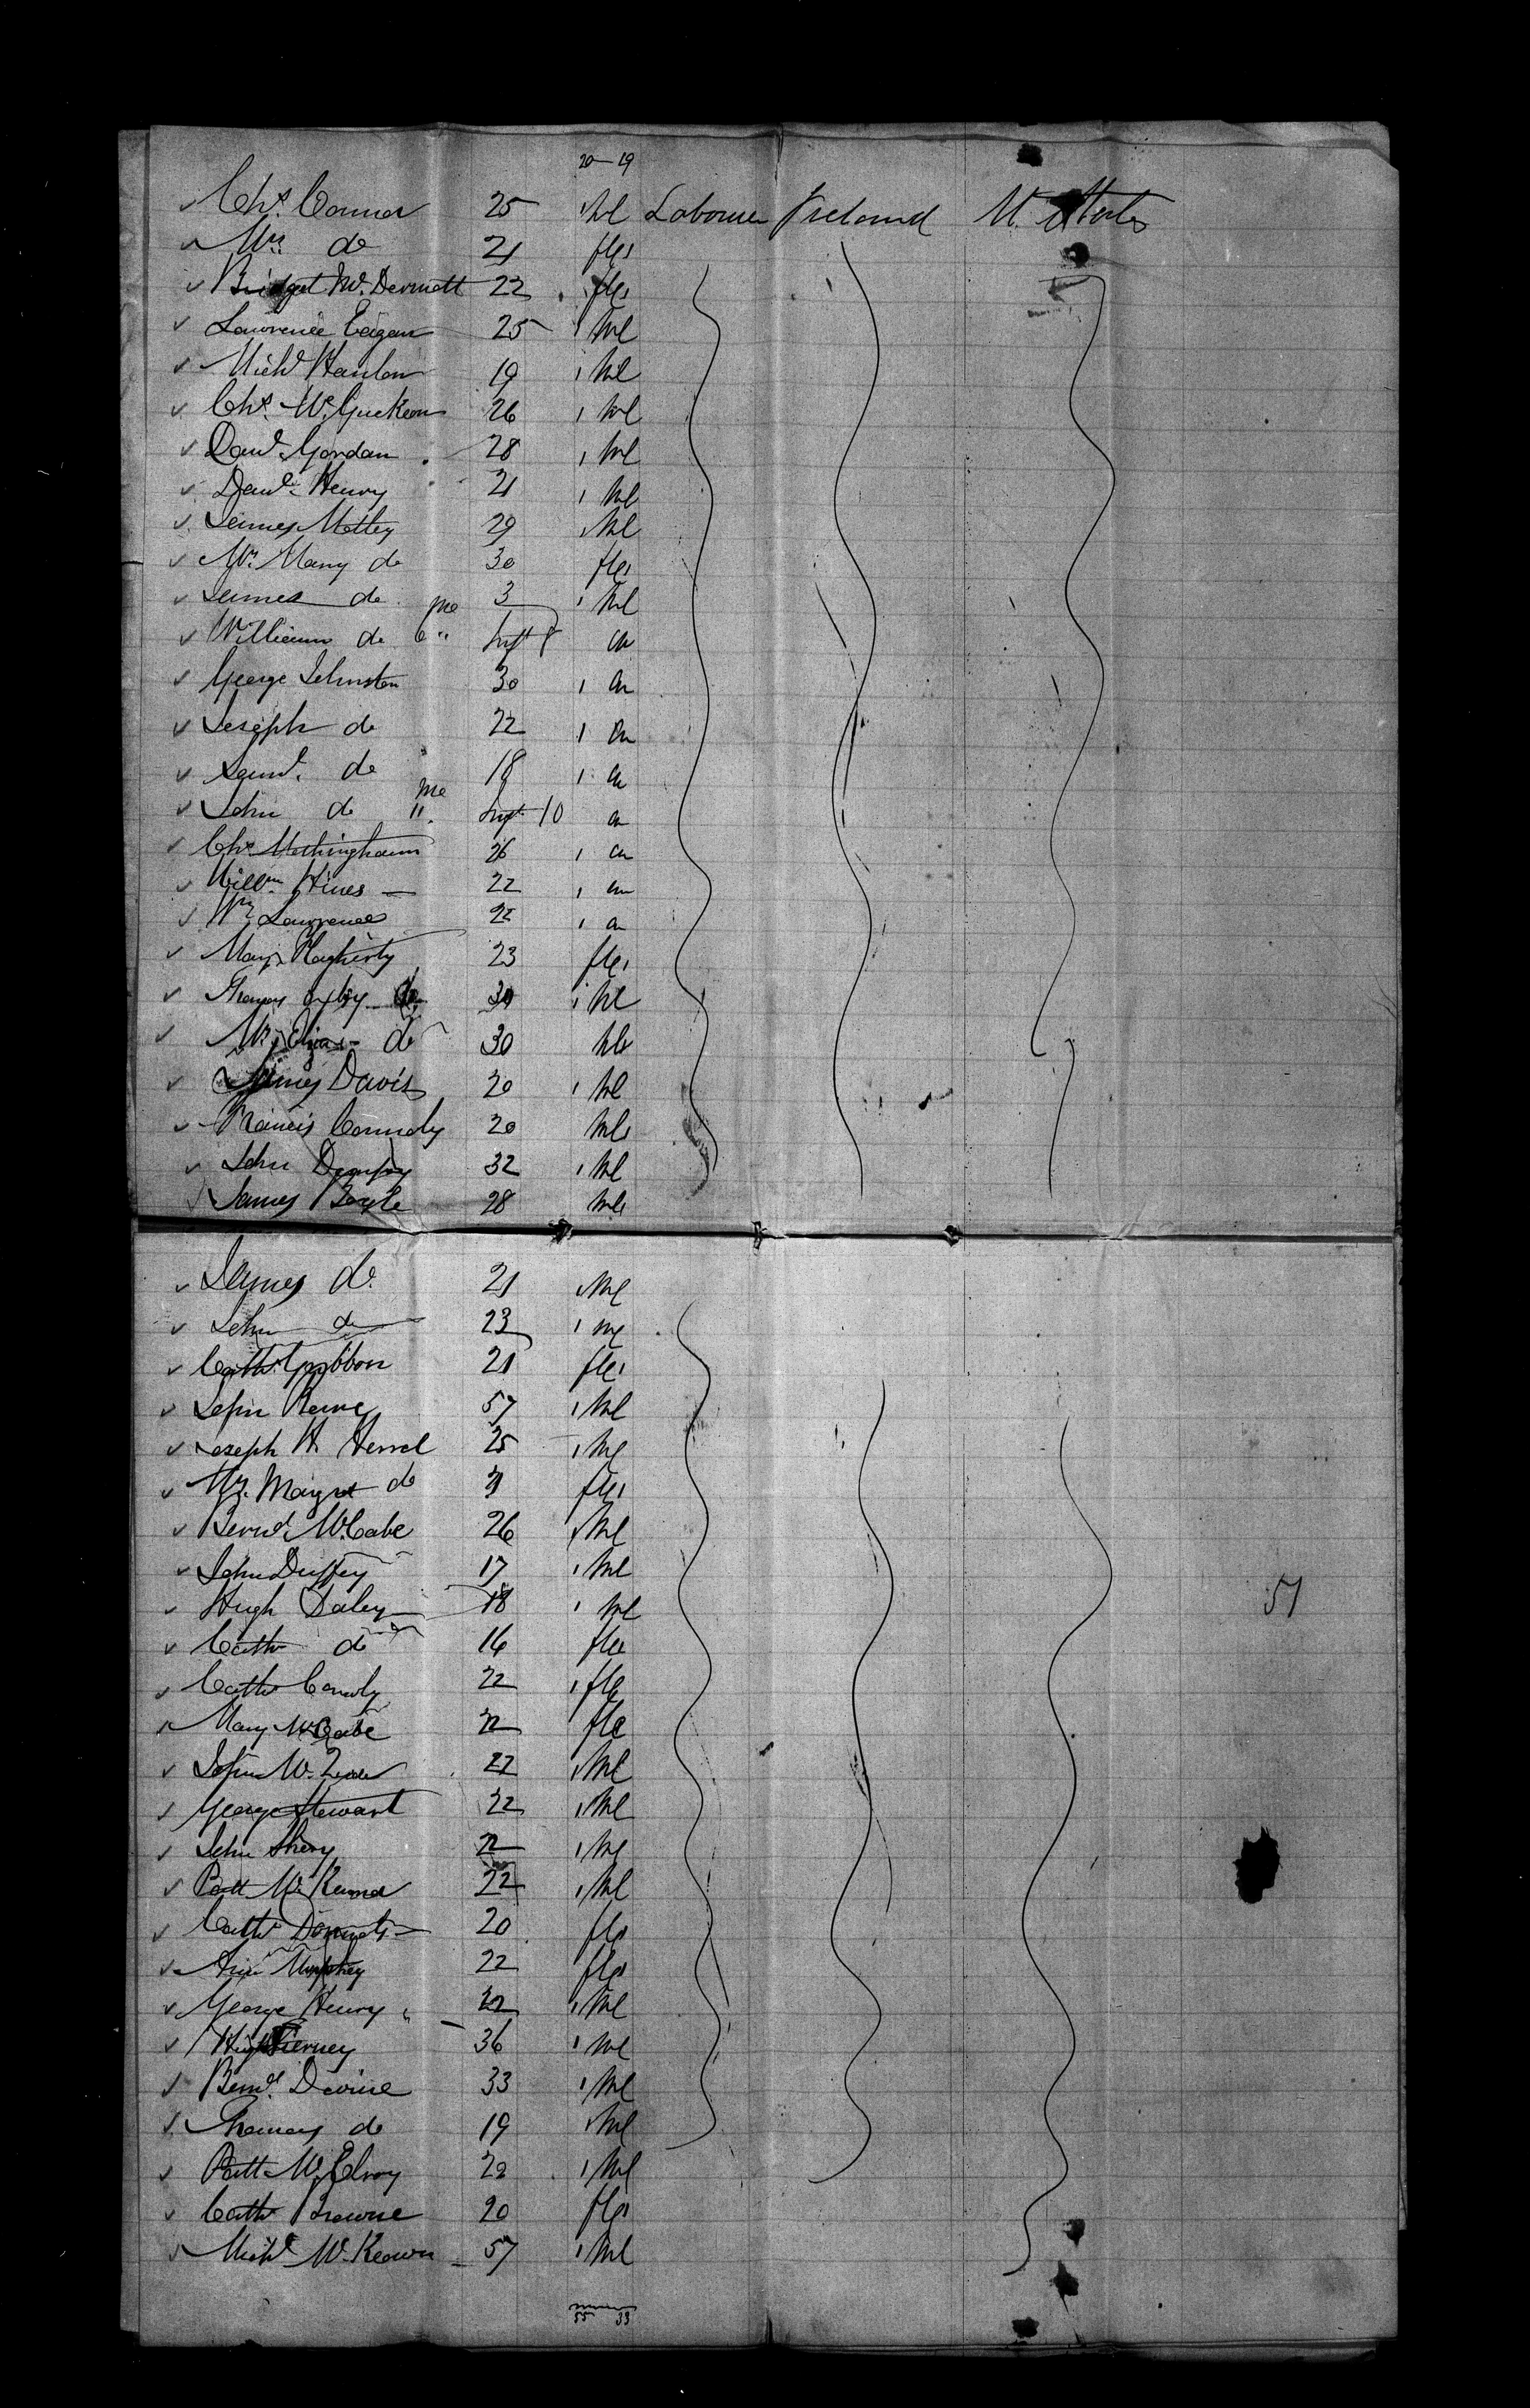 20 19
Chs. Connor 25 Ml Labourer Ireland U. States
Mrs. do 21 fle
Bridget McDermott 22 fle
Lawrence Eagan 25 Ml
Michl Hanlon 19 Ml
Chs. McGuckean 26 Ml
Davd. Gordan 28 Ml
Davd. Henry 21 Ml
James Motley 29 Ml
Mrs. Mary do 30 fle
James do 3 Ml
William do 6 mo Inft
George Johnston 30
Joseph do 22
Saml. do 18
John do 11 mo Inft 10
Chs 26
Willm Hines 22
Wm Lawrence 22
Mary Flagherty 23 fle
Thomas do 30 Ml
Mrs Eliza do 30
James Davis 20 Ml
Francis Connoly 20 Ml
John Dempsy 32 Ml
James Boyle 28 Ml
James do. 21 Ml
John do 23 Ml
Cath. Gribbon 21 fle
John 57 Ml
Joseph H. 25 Ml
Mrs. Margret do 21 fle
Bernd. McCabe 26 Ml
John Duffey 17 Ml
Hugh Daley 18 Ml 51
Cath do 16 fle
Cath Conoly 22 fle
Mary McCabe 22 fle
John 22 Ml
George Stewart 22 Ml
John 22 Ml
Patt McKenna 22 Ml
Cath Donnely 20 fle
Ann Murphey 22 fle
George Henry 22 Ml
Hugh Tierney 36 Ml
Bernd. Devine 33 Ml
Thomas do 19 Ml
Patt McElroy 22 Ml
Cath Browne 20 fle
Michl McKeown 57 Ml
55 33